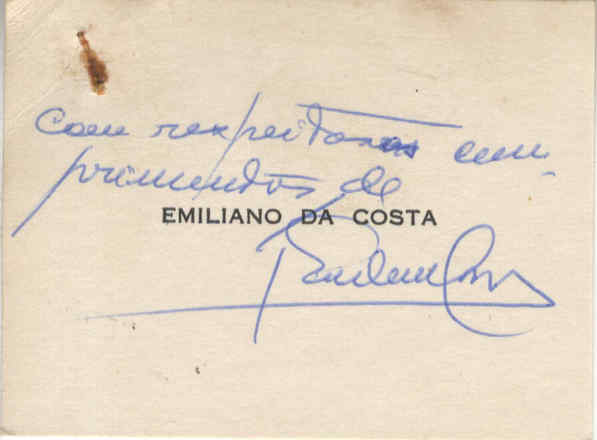 Com respeitosos cum-
primentos de
EMILIANO DA COSTA